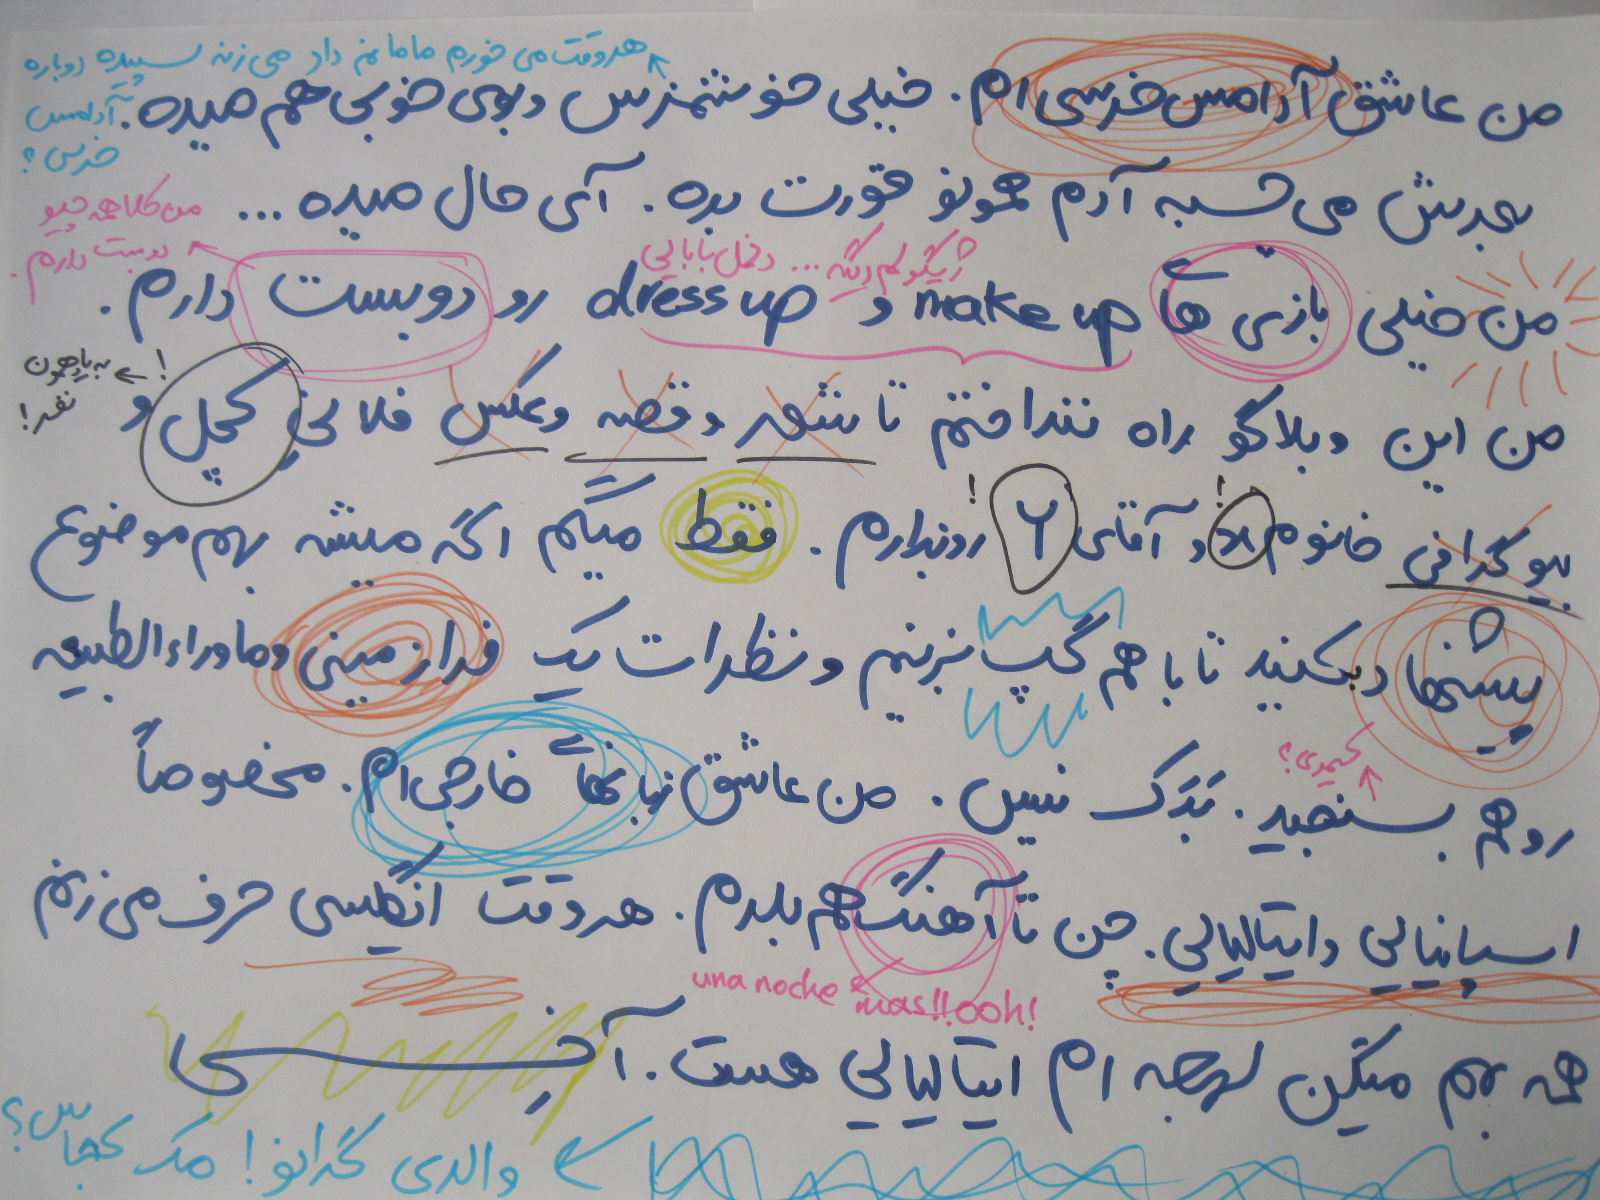 هروقت می خورم مامانم داد می زنه سپیده دوباره
آدامس
خرسی؟
من عاشق آدامس خرسی ام. خیلی خوشمزس و بوی خوبی هم میده.
بعدش می چسبه آدم همونو قورت بده. آی حال میده ...
من کلا همه چیو
دوبست دارم.
ژیگولم دیگه ... دخمل بابایی
من خیلی بازی های make up و dress up رو دوبست دارم.
به یاد همون
نفر!
من این وبلاگو راه ننداختم تا شعر و قصه و عکس فلانی کچل و
بیوگرافی خانوم و آقای Y رو بذارم. فقط میگم اگه میشه بهم موضوع
پیشنهاد بکنید تا با هم گپ بزنیم و نظرات یک فرازمینی و ماوراءالطبیعه
کیمدی؟
رو هم بسنجید. بَدَک نیس. من عاشق زبانهای خارجی ام. مخصوصاً
اسپانیایی و ایتالیایی. چن تا آهنگ هم بلدم. هروقت انگلیسی حرف می زنم
una noche mas!! ooh!
همه بهم میگن لهجه ام ایتالیایی هست. آخی
والدی گرانو! مک کجاس؟